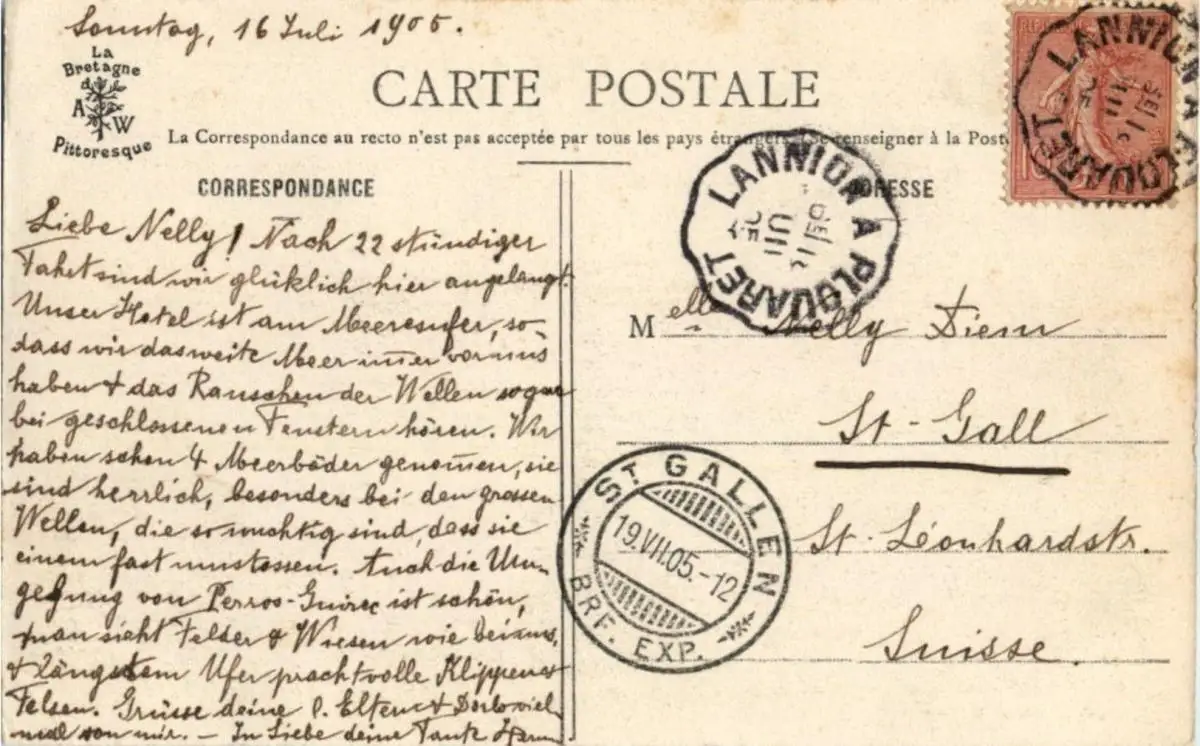 Sonntag, 16 Juli 1905.
La
Bretagne
d
A W
Pittoresque
CARTE POSTALE
La Correspondance au recto n'est pas acceptée par tous les pays étrangers (Se renseigner à la Poste
CORRESPONDANCE
Liebe Nelly! Nach 22 stündiger
Fahrt sind wir glücklich hier angelangt.
Unser Hotel ist am Meeresufer, so-
dass wir das weite Meer immer vor uns
haben & das Rauschen der Wellen sogar
bei geschlossenen Fenstern hören. Wir
haben schon 4 Meerbäder genommen, sie
sind herrlich, besonders bei den grossen
Wellen, die so wuchtig sind, dass sie
einem fast umstossen. Auch die Um-
gebung von Perros-Guirec ist schön,
man sieht Felder & Wiesen wie bei uns,
& längs dem Ufer prachtvolle Klippen &
Felsen. Grüsse deine l. Eltern & viel
mal von mir. – In Liebe deine Tante
ADRESSE
Melle Nelly Diem
St-Gall
St. Léonhardstr.
Suisse.
LANNION A PLOUARET
LANNION A PLOUARET
ST GALLEN
19.VII.05.-12
BRF. EXP.